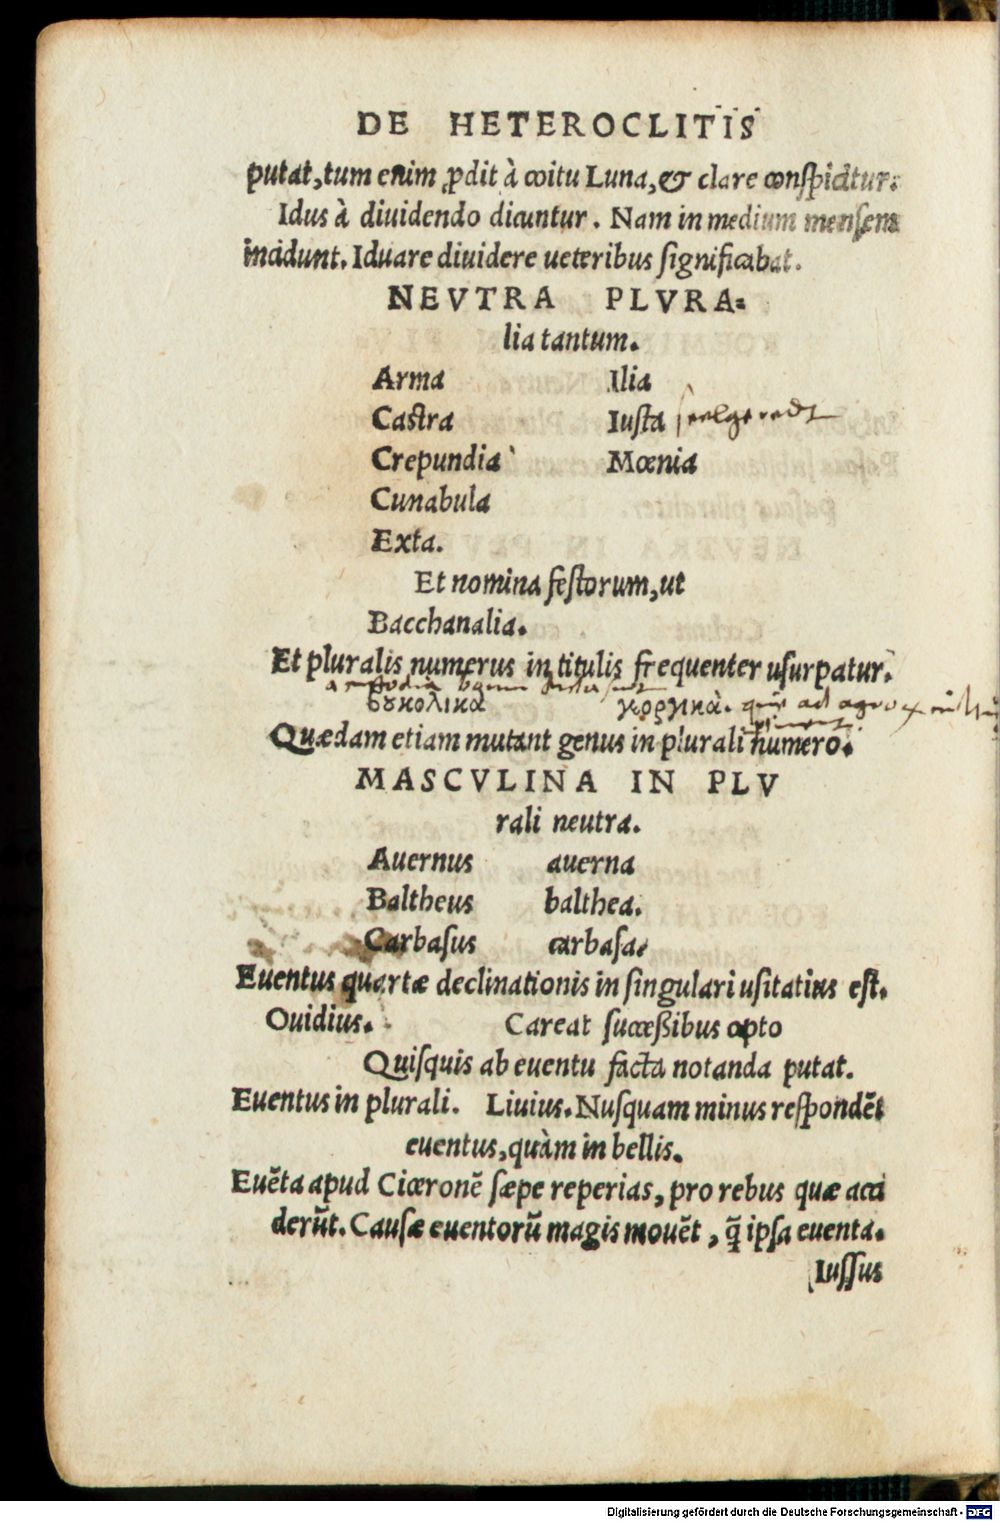 DE HETEROCLITIS
putat, tum enim ꝓdit à coitu Luna, & clare conspicitur.
Idus à diuidendo dicuntur. Nam in medium mensem
incidunt. Iduare diuidere ueteribus significabat.
NEVTRA PLVRA-
lia tantum.
Arma Ilia
Castra Iusta seelgeredt
Crepundia Mœnia
Cunabula
Exta.
Et nomina festorum, ut
Bacchanalia.
Et pluralis numerus in titulis frequenter usurpatur.
βουκολικὰ γεωργικὰ. que ad agros
Quædam etiam mutant genus in plurali numero.
MASCVLINA IN PLV
rali neutra.
Auernus auerna
Baltheus balthea.
Carbasus carbasa.
Euentus quartæ declinationis in singulari usitatius est.
Ouidius. Careat successibus opto
Quisquis ab euentu facta notanda putat.
Euentus in plurali. Liuius. Nusquam minus respondẽt
euentus, quàm in bellis.
Euẽta apud Ciceronẽ sæpe reperias, pro rebus quæ acci
derũt. Causæ euentorũ magis mouẽt, q̃ ipsa euenta.
Iussus
Digitalisierung gefördert durch die Deutsche Forschungsgemeinschaft - DFG